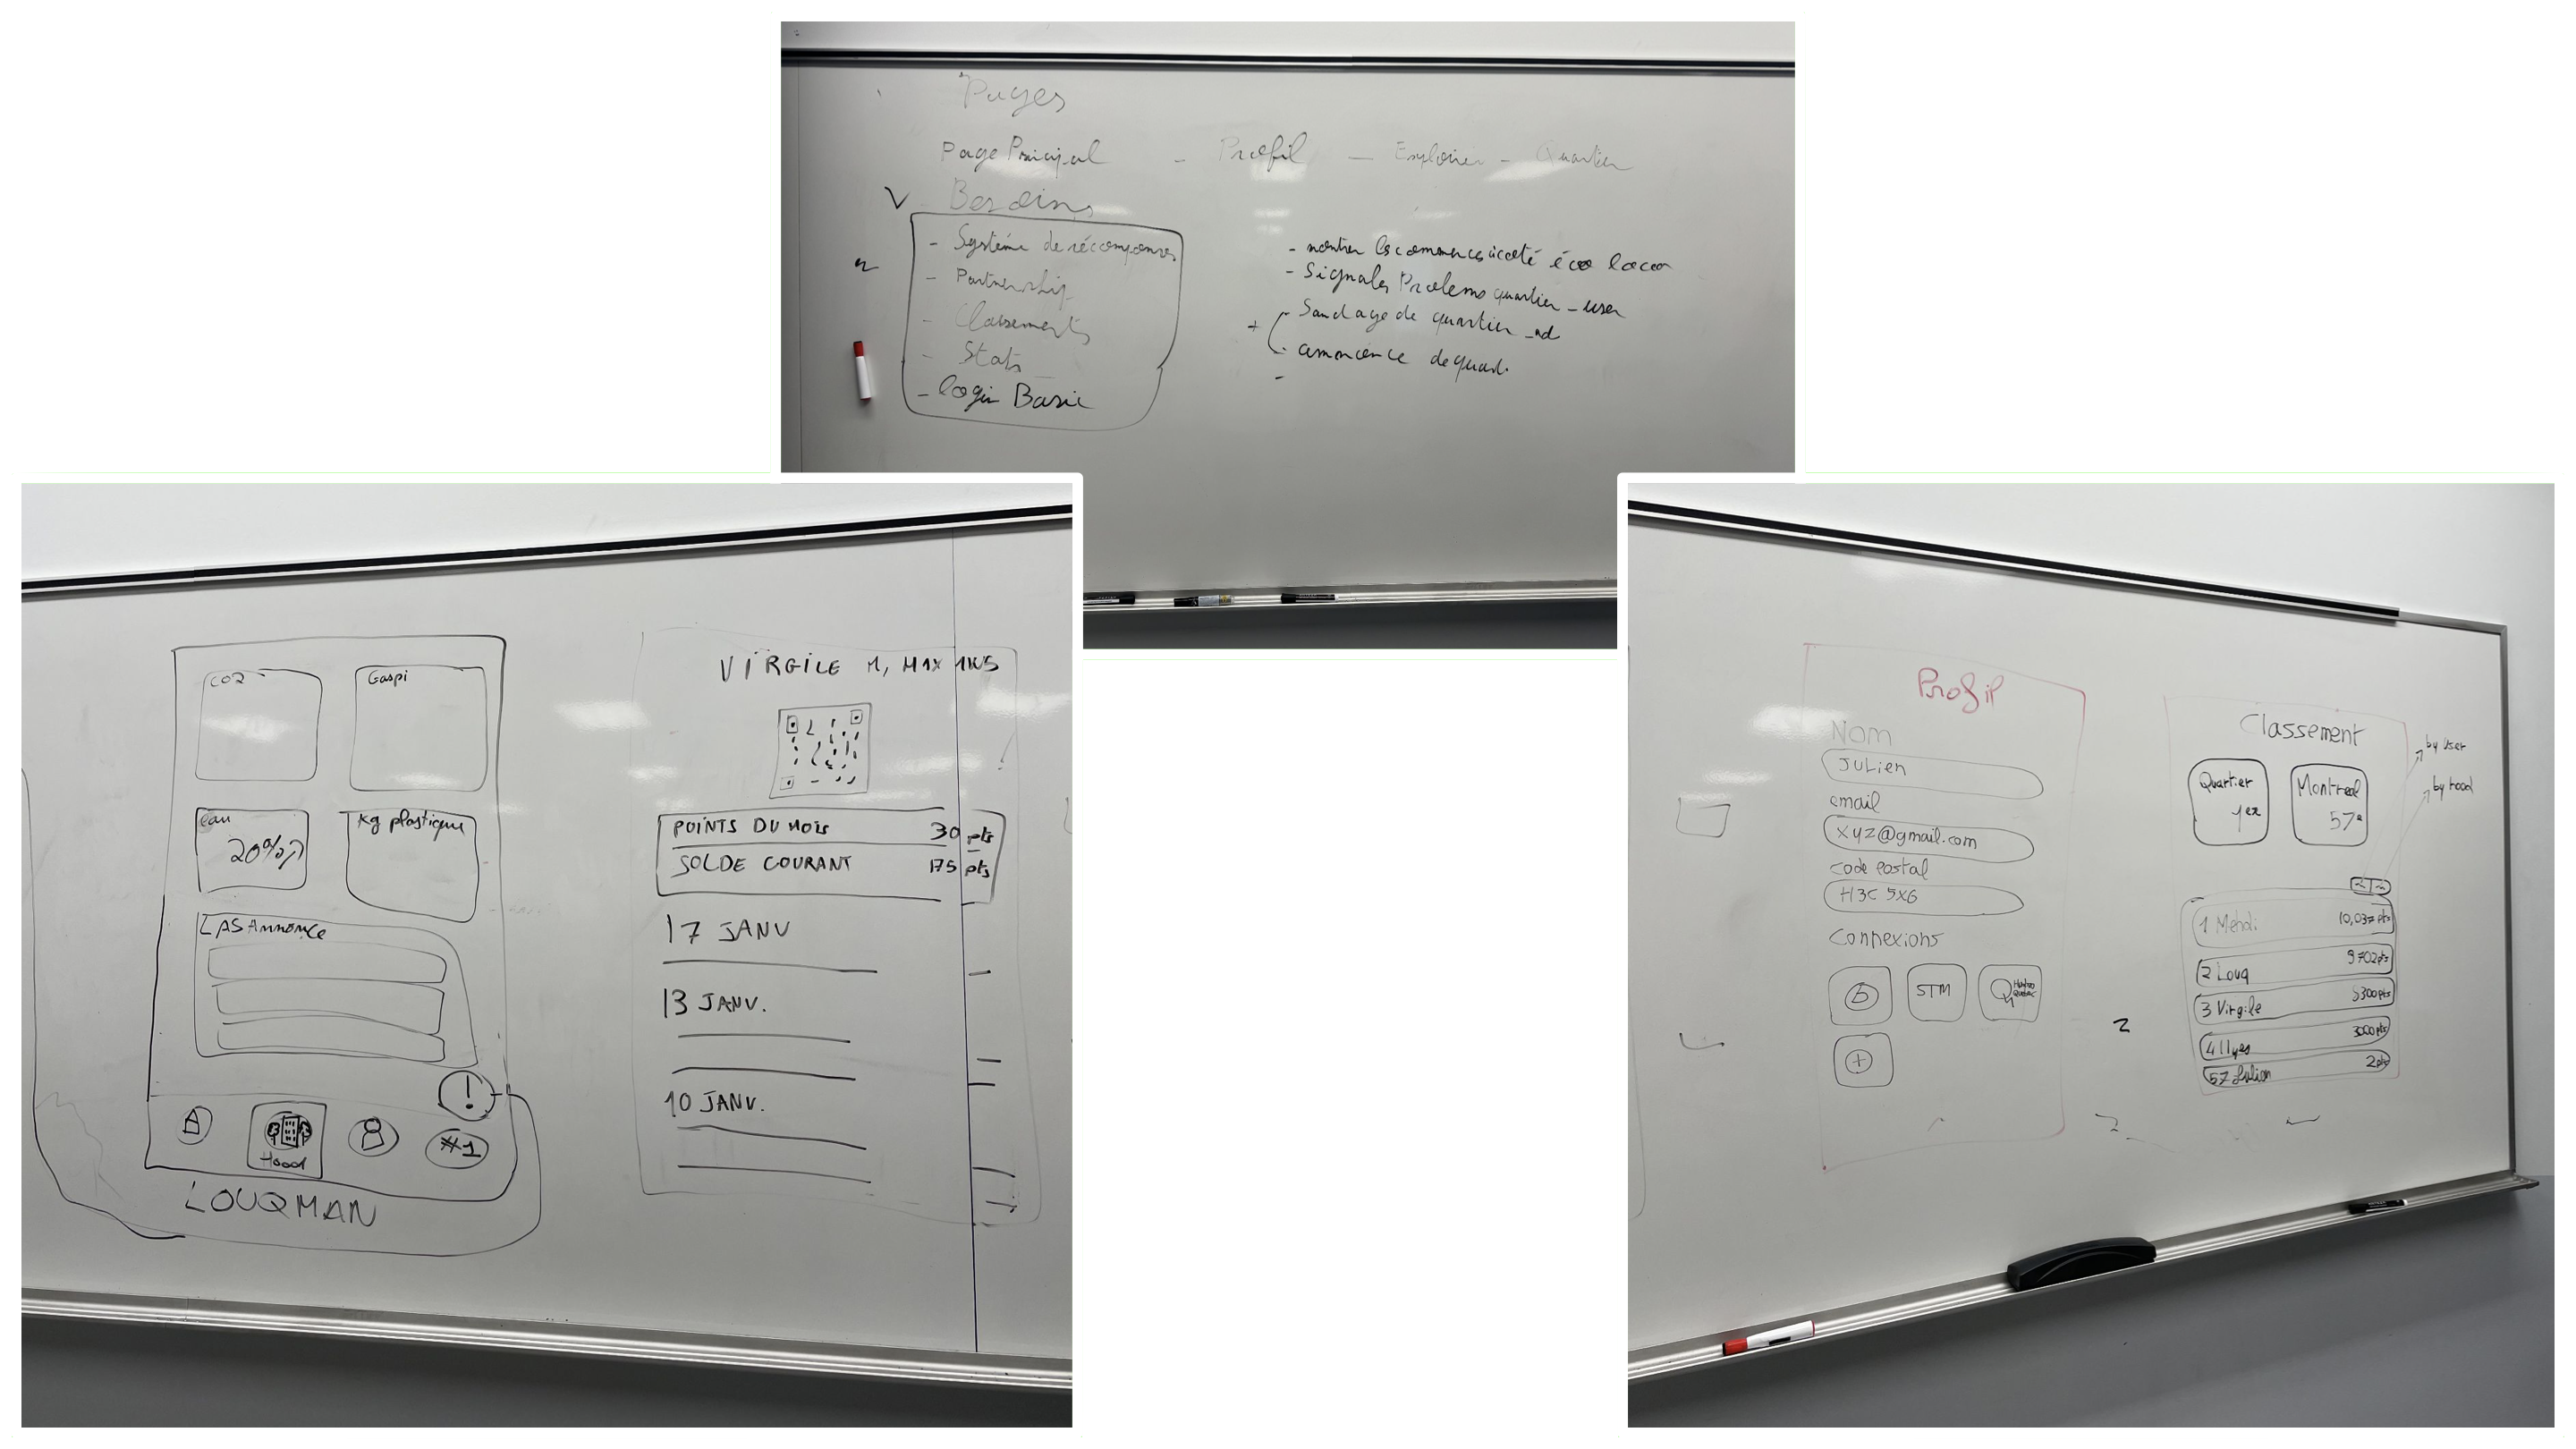 Pages
Page Principal - Profil - Explorer - Quartier
Besoins
- Système de récompenses
- Partnership
- Classements
- Stats
- login Basic
- montrer les commerces à coté éco
- Signaler Problems quartier - user
+ - Sondage de quartier - ad
- de quart.
CO2
Gaspi
eau
20%
kg plastique
LAS Annonce
!
Hood
#1
LOUQMAN
VIRGILE
POINTS DU MOIS 30 pts
SOLDE COURANT 175 pts
17 JANV
13 JANV.
10 JANV.
Profil
Nom
Julien
email
xyz@gmail.com
code postal
H3C 5X6
Connexions
STM
Hydro
Quebec
+
Classement
by user
by hood
Quartier
1er
Montreal
57e
1 Mehdi 10,037 pts
2 Louq 9702 pts
3 Virgile 5300 pts
4 Ilyes 3000 pts
57 Julien 2 pts